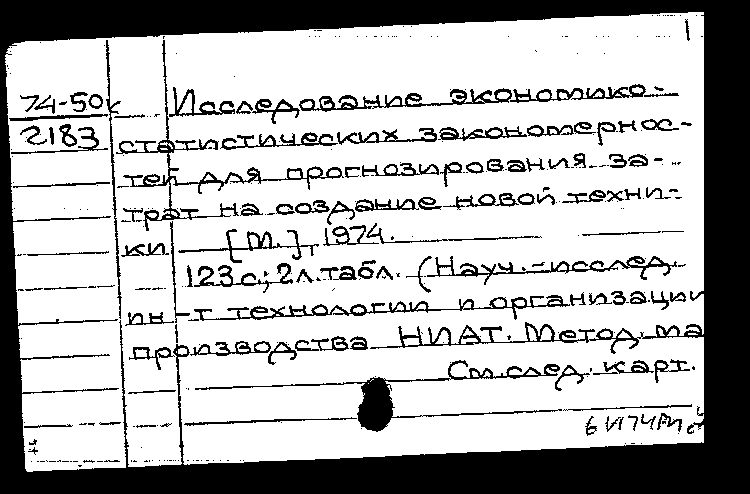 74-50к Исследование экономико-
2183 статистических закономернос-
тей для прогнозирования за-
трат на создание новой техни-
ки [М.], 1974.
123с.; 2л.табл. (Науч.-исслед.
ин-т технологии и организации
производства НИАТ. Метод. ма
См.след. карт.